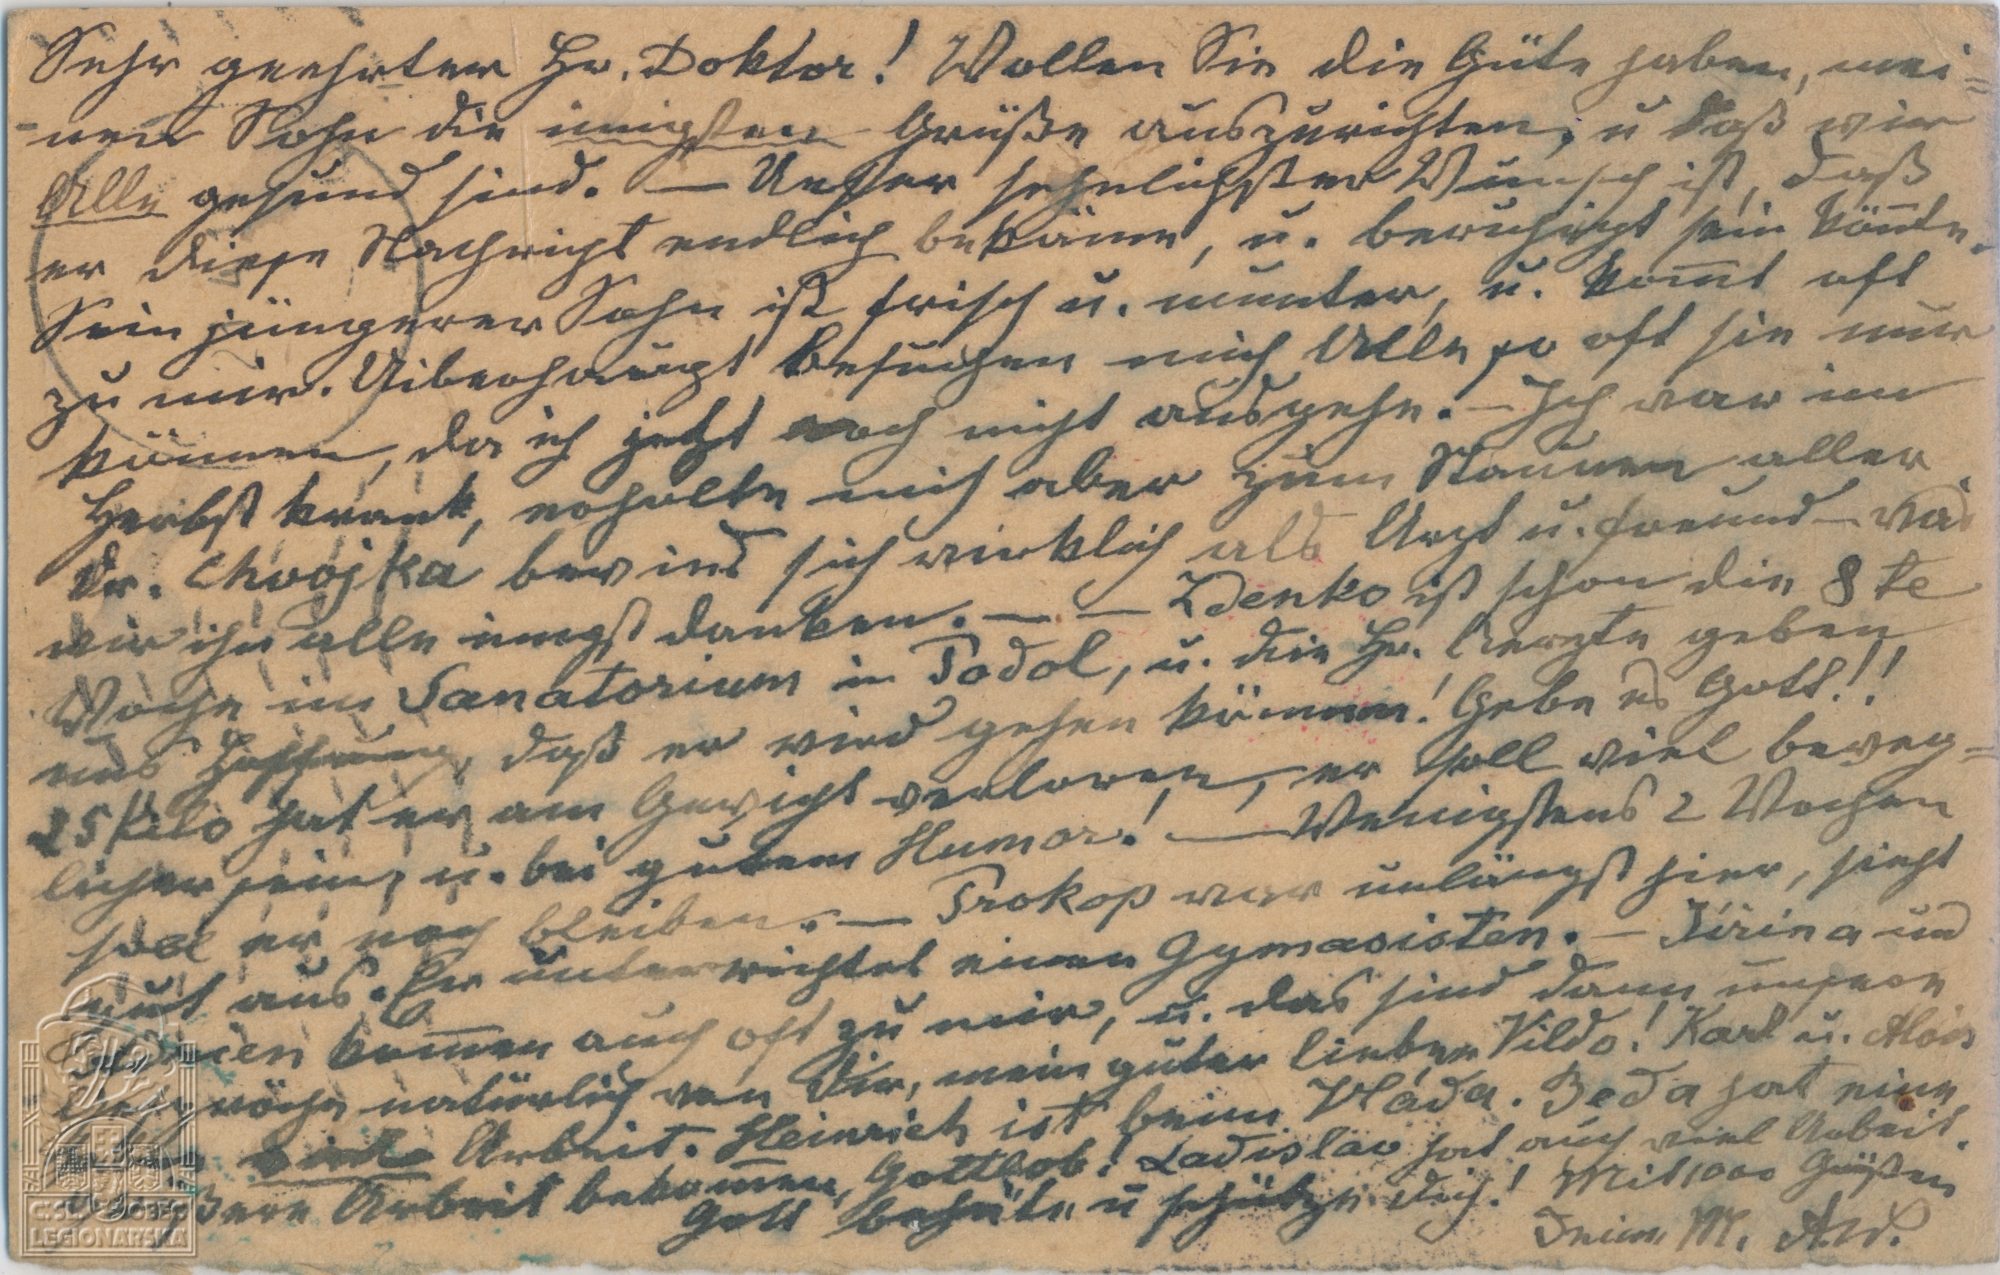 Sehr geehrter Hr. Doktor! Wollen Sie die Güte haben, mei=
=nen Sohn die innigsten Grüße auszurichten, u daß wir
Alle gesund sind. — Unser sehnlichster Wunsch ist, daß
er diese Nachricht endlich bekäme, u. beruhigt sein könnte.
Sein jüngerer Sohn ist frisch u. munter, u. kom̅t oft
zu mir. Uiberhaupt besuchen mich Alle so oft sie nur
können, da ich jetzt noch nicht ausgehe. — Ich war im
Herbst krank, erholte mich aber zum Staunen aller
Dr. Chvojka bewies sich wirklich als Arzt u. Freund — was
wir ihm alle innigst danken. — — Zdenko ist schon die 8te
Woche im Sanatorium in Podol, u. die Hr. Aerzte geben
uns Hoffnung, daß er wird gehen können! Gebe es Gott!!
25 Kilo hat er am Gewicht verloren, er soll viel beweg=
licher sein, u. bei gutem Humor! — Wenigstens 2 Wochen
soll er noch bleiben. — Prokop war unlängst hier, sieht
gut aus. Er unterrichtet einen Gymasisten. — Jiřina und
kom̅en auch oft zu mir, u. das sind dann unsere
Gespräche natürlich von Dir, mein guter lieber Vildo! Karl u. Alois
viele Arbeit. Heinrich ist beim Vláda. Beda hat eine
größere Arbeit bekom̅en, Gottlob! Ladislav hat auch viel Arbeit.
Gott behüte u schütze Dich! Mit 1000 Grüßen
Deine M. A.W.
ČSL. OBEC
LEGIONÁŘSKÁ